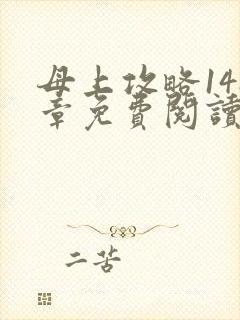 母上攻略14
章免費閱讀
二苦